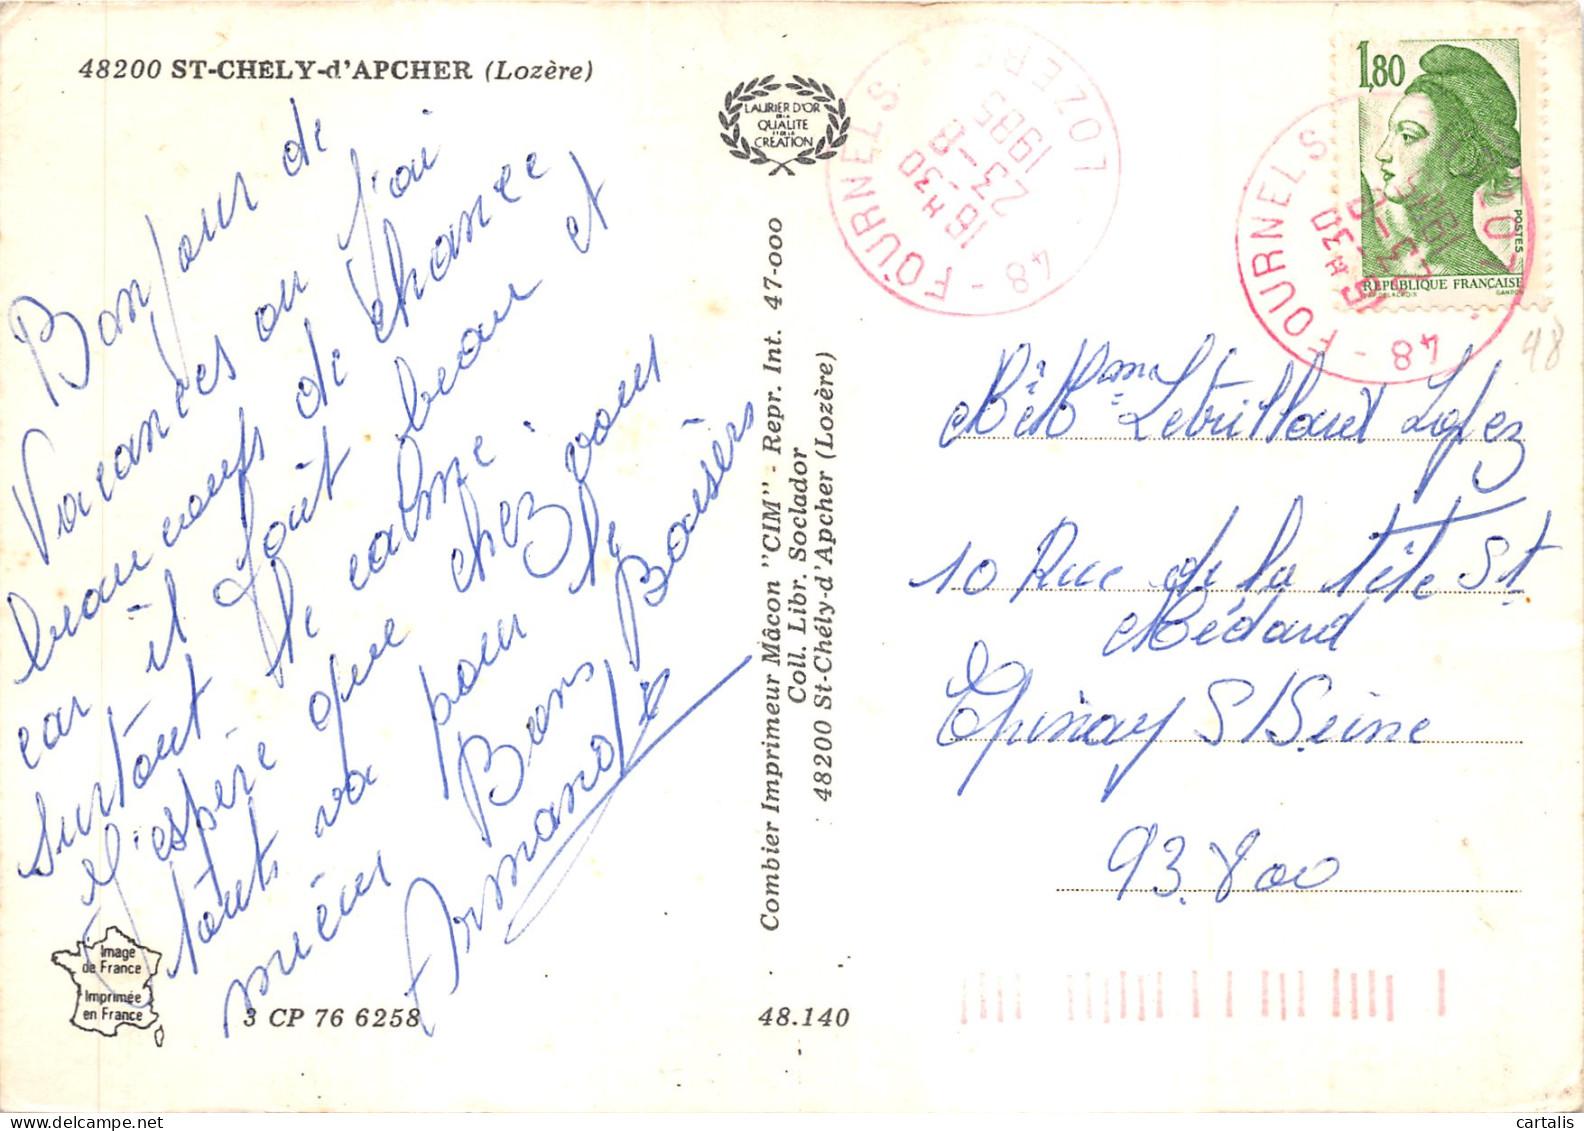 48200 ST-CHÉLY-d'APCHER (Lozère)
Bonjour de
Vacances ou j'ai
beaucoup de chance
car il fait beau et
surtout le calme.
J'espère que chez vous
tout va pour le
mieux Bons Baisers
Armand
LAURIER D'OR
DE LA
QUALITE
ET DE LA
CREATION
Combier Imprimeur Mâcon "CIM" - Repr. Int. 47-000
Coll. Libr. Soclador
48200 St-Chély-d'Apcher (Lozère)
Image
de France
Imprimée
en France
3 CP 76 6258
48.140
48 - FOURNELS LOZERE
18 H30
23 -1
1985
1,80
POSTES
REPUBLIQUE FRANÇAISE
DELACROIX
GANDON
48 - FOURNELS
48
Lopez
10 Rue de la tête St
Médard
Epinay S/Seine
93.800
cartalis